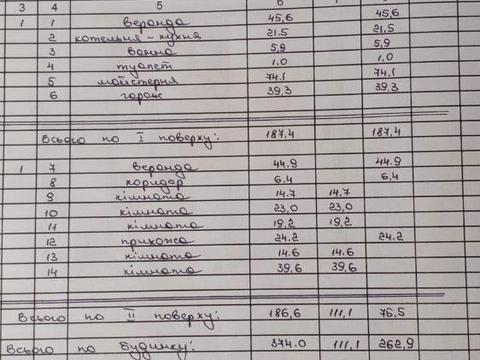 3 4 5 6
1 1 веранда 45,6 45,6
2 котельня - кухня 21.5 21,5
3 ванна 5,9 5,9
4 туалет 1.0 1,0
5 майстерня 74,1 74,1
6 гараж 39,3 39,3
Всього по I поверху: 187,4 187,4
1 7 веранда 44.9 44.9
8 коридор 6,4 6,4
9 кімната 14.7 14,7
10 кімната 23,0 23,0
11 кімната 19,2 19,2
12 прихожа 24.2 24.2
13 кімната 14.6 14.6
14 кімната 39,6 39,6
Всього по II поверху: 186,6 111,1 76,5
Всього по будинку: 374.0 111,1 262,9